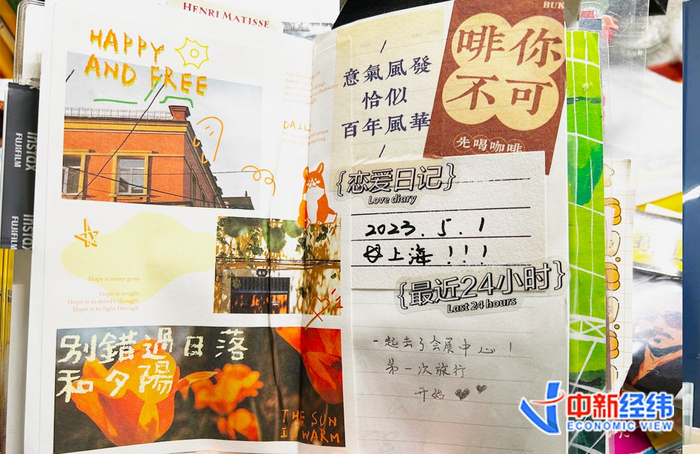 HENRI MATISSE
HAPPY
AND FREE
instax
FUJIFILM
instax
FUJIFILM
Hope is never gone
Hope is sought
Hope is to fight through
別錯過日落
和夕陽
THE SUN
IS WARM
/
意氣風發
恰似
百年風華
/
啡你
不可
先喝咖啡
{恋爱日记}
Love diary
2023.5.1
上海!!!
{最近24小时}
Last 24 hours
一起去了会展中心!
第一次旅行
开始
中新经纬
ECONOMIC VIEW